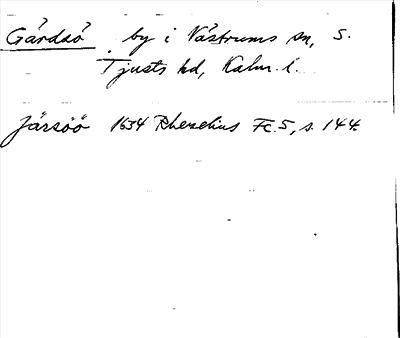 Gårdsö by i Västrums sn, S.
Tjusts hd, Kalm. l.
Järsöö 1634 Rhezelius Fc.5, s. 144.